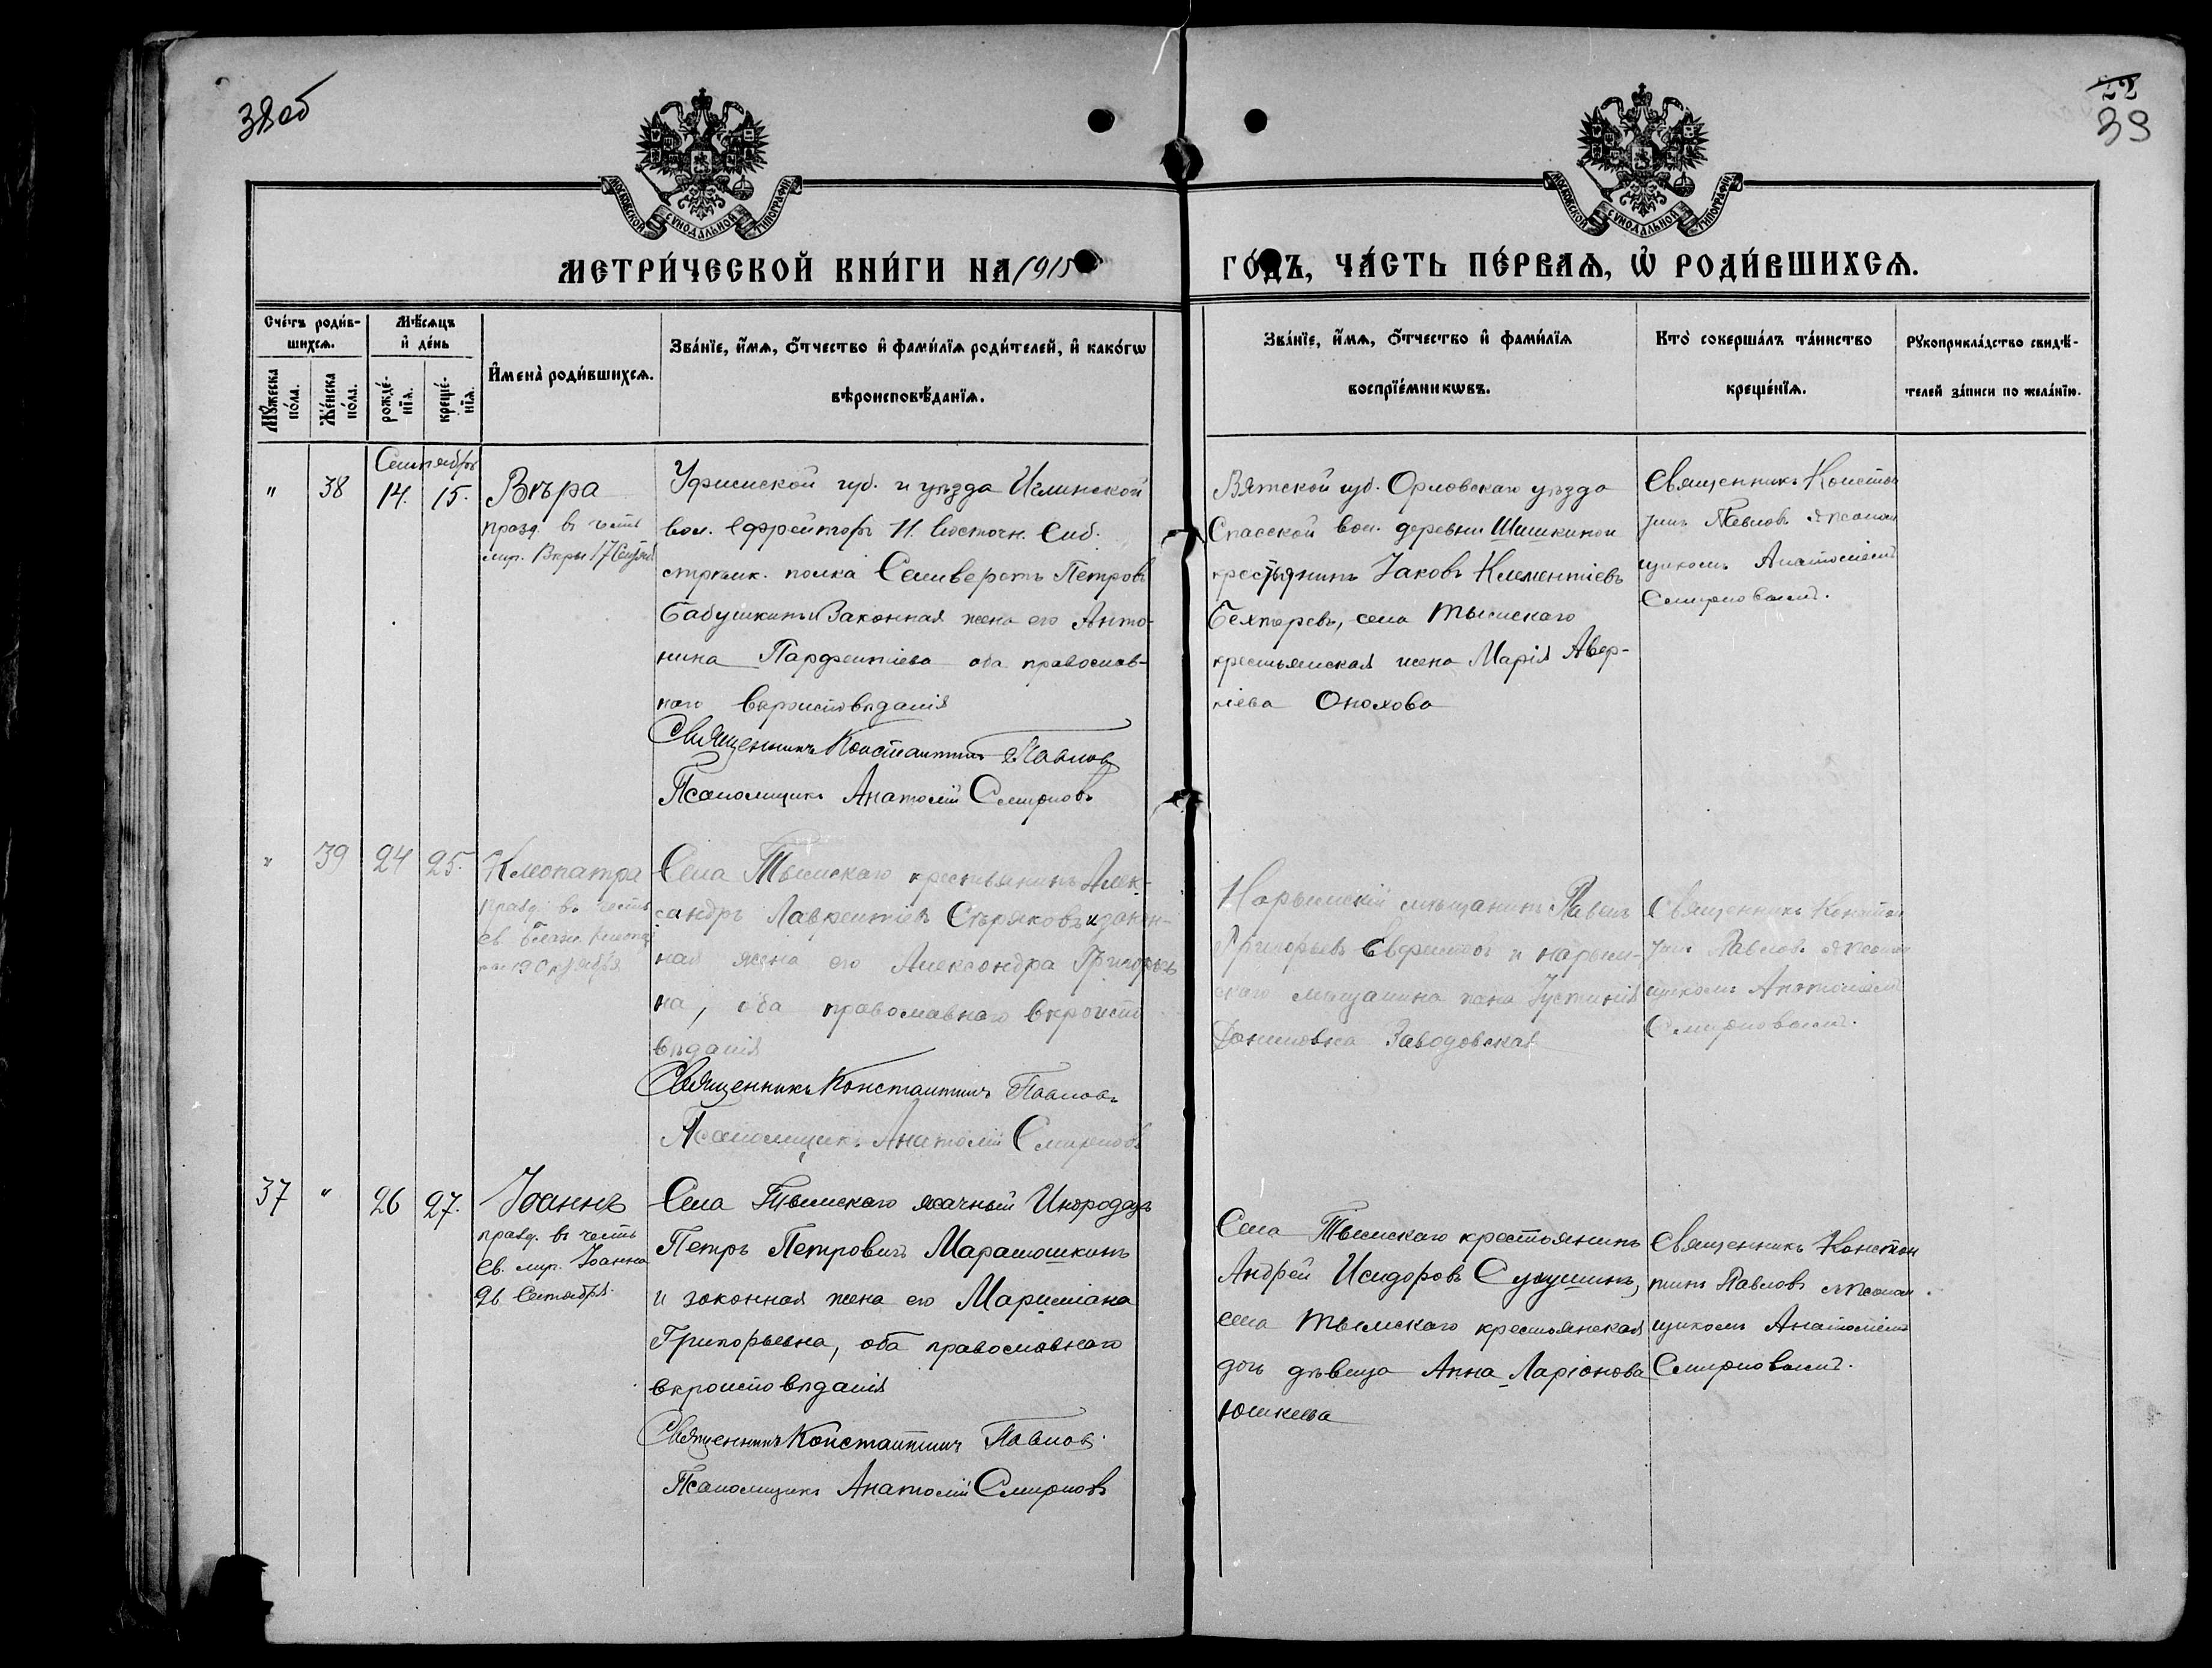 38об
22
39
МОСКОВСКОЙ СУНОДАЛЬНОЙ ТИПОГРАФІИ
МОСКОВСКОЙ СУНОДАЛЬНОЙ ТИПОГРАФІИ
МЕТРИ́ЧЕСКОЙ КНИ́ГИ НА 1915
ГО́ДЪ, ЧА́СТЬ ПЕ́РВАѦ, Ѡ҆ РОДИ́ВШИХСѦ.
Сче́тъ роди́в-
шихсѧ.
Мꙋ́жеска
по́ла.
Же́нска
по́ла.
Мѣ́сѧцъ
и҆ де́нь
рожде́-
нїѧ.
креще́-
нїѧ.
И҆мена̀ роди́вшихсѧ.
Зва́нїе, и҆́мѧ, ѻ҆́тчество и҆ фами́лїѧ роди́телей, и҆ како́гѡ
вѣроисповѣ́данїѧ.
Зва́нїе, и҆́мѧ, ѻ҆́тчество и҆ фами́лїѧ
воспрїе́мникѡвъ.
Кто̀ соверша́лъ та́инство
креще́нїѧ.
Рꙋкоприкла́дство свидѣ́-
телей за́писи по жела́нїю.
Сентябрь
" 38 14. 15. Вѣра
празд. въ честь
муч. Вѣры 17 Сентяб
Уфимской губ. и уѣзда Иглинской
вол. ефрейторъ 11. Восточн. Сиб.
стрѣлк. полка Селиверстъ Петровъ
Бабушкинъ и Законная жена его Анто-
нина Парфентіева оба православ-
наго вѣроисповѣданія
Священникъ Константинъ Павлов
Псаломщикъ Анатолій Смирновъ
Вятской губ. Орловскаго уѣзда
Спасской вол. деревни Шишкиной
крестьянинъ Іаковъ Клементіевъ
Бехтеревъ, села Тымскаго
крестьянская жена Марія Авер-
кіева Онохова
Священникъ Констан
тинъ Павловъ съ псалом
щикомъ Анатоліемъ
Смирновымъ.
" 39 24 25. Клеопатра
празд. въ честь
св. Клеопат
ры 19 Октября
Села Тымскаго крестьянинъ Алек-
сандръ Лаврентіевъ Стряковъ и закон-
ная жена его Александра Григорьев
на, оба православнаго вѣроиспо
вѣданія
Священникъ Константинъ Павловъ
Псаломщикъ Анатолій Смирновъ
Нарымскій мѣщанинъ Павелъ
Григорьевъ Еврестов и нарым-
скаго мѣщанина жена Іустинія
Даниловна Заводовская
Священникъ Констан
тинъ Павловъ съ псалом
щикомъ Анатоліемъ
Смирновымъ.
37 " 26 27. Іоаннъ
празд. въ честь
св. Іоанна
26 Сентября
Села Тымскаго ясачный Инородецъ
Петръ Петровичъ Марамошкинъ
и законная жена его Мариміана
Григорьевна, оба православнаго
вѣроисповѣданія
Священникъ Константинъ Павлов
Псаломщикъ Анатолій Смирновъ
Села Тымскаго крестьянинъ
Андрей Исидоровъ Сухушинъ,
села Тымскаго крестьянская
дочь дѣвица Анна Ларіонова
Юшкева
Священникъ Констан
тинъ Павловъ съ псалом
щикомъ Анатоліемъ
Смирновымъ.